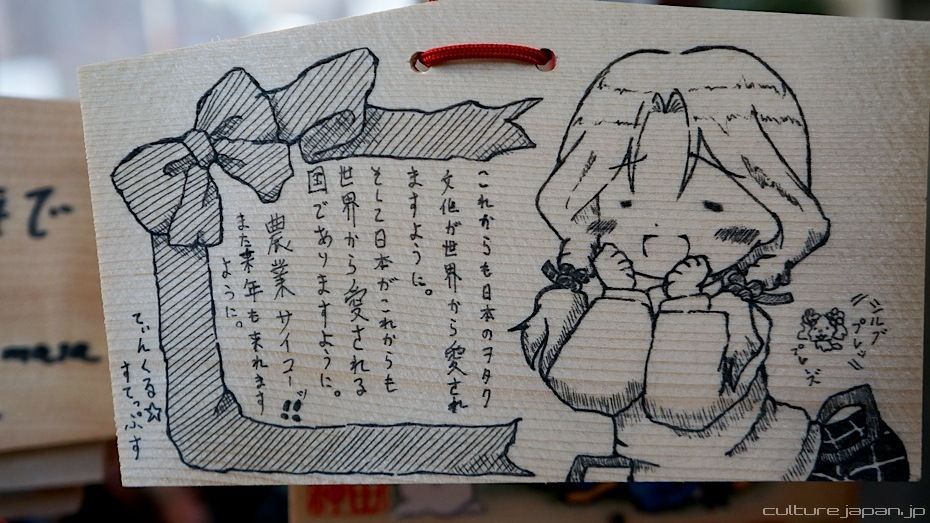 これからも日本のヲタク
文化が世界から愛され
ますように。
そして日本がこれからも
世界から愛される
国でありますように。
農業サイコーッ!!
また来年も来れます
ように。
てぃんくる☆
すてっぷす
シルブ
プレッ
プレーズ
で
masa
神田
culturejapan.jp